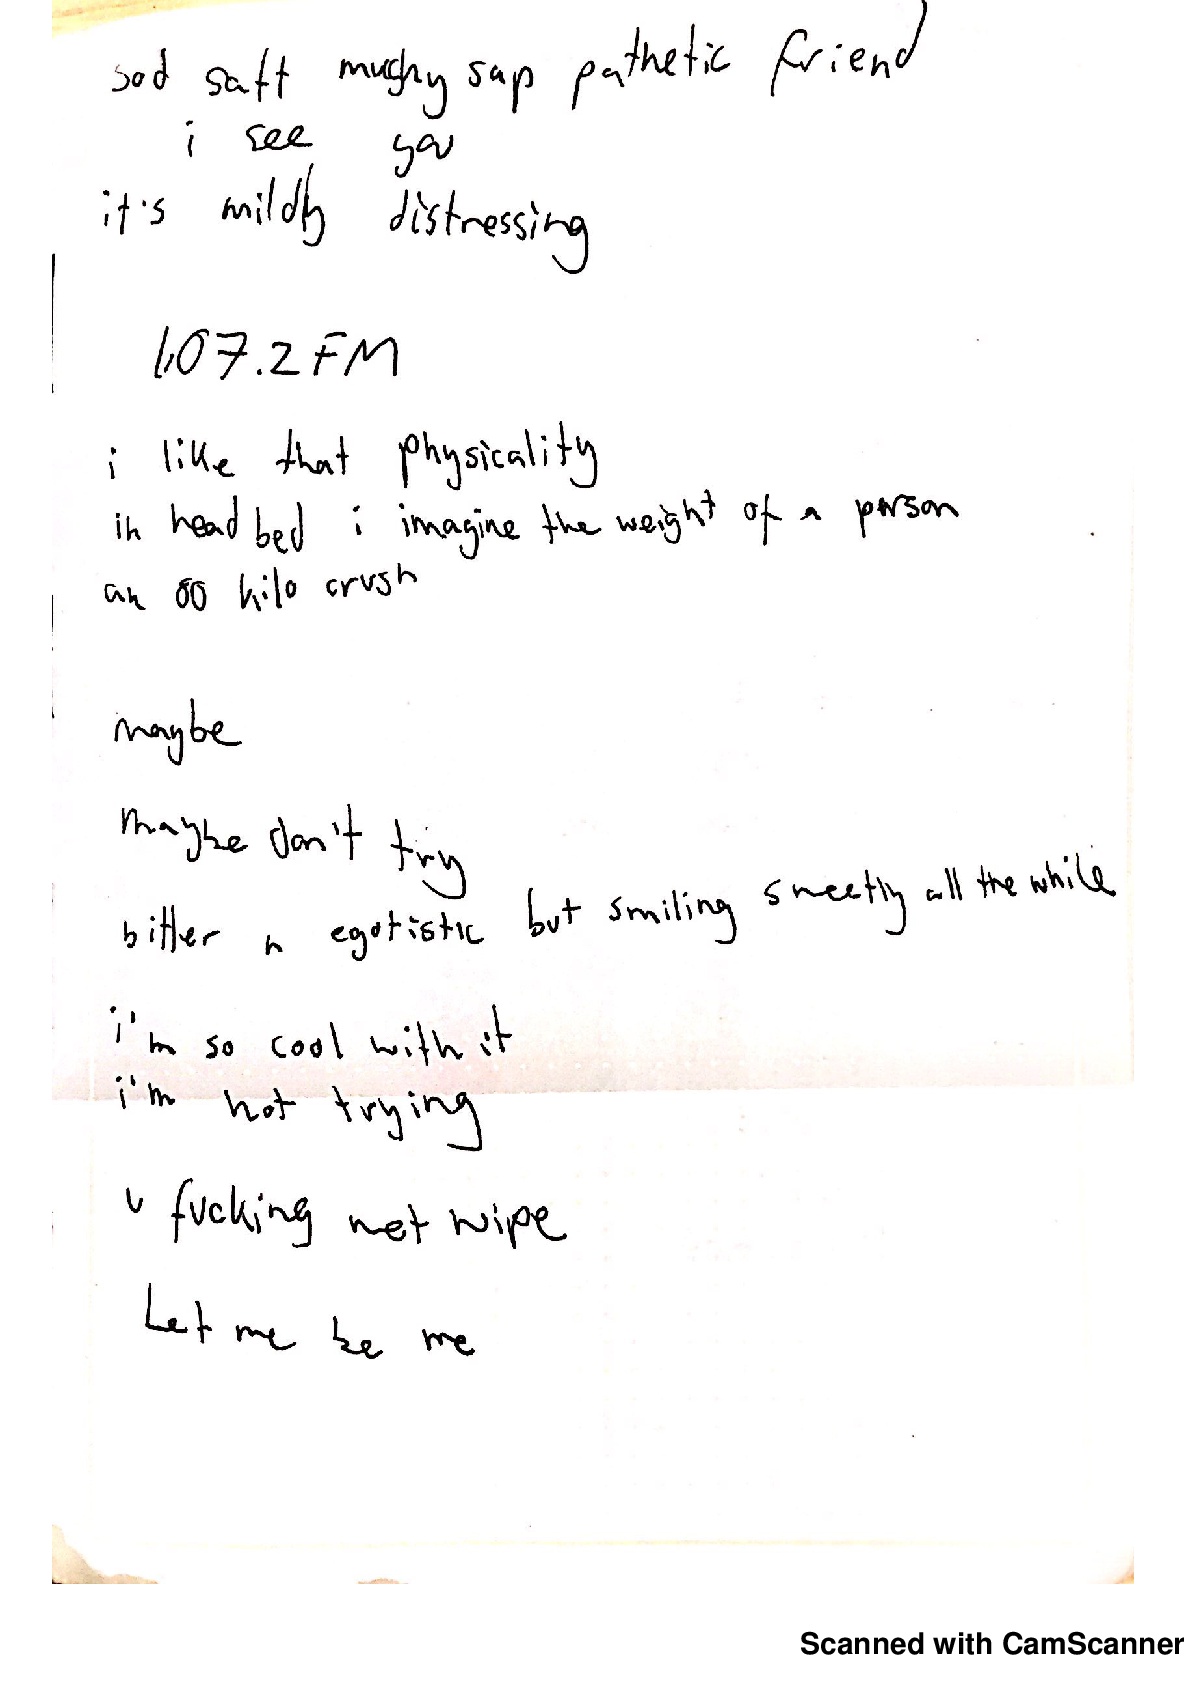 sad saft mushy sap pathetic friend
i see you
it's mildly distressing
107.2 FM
i like that physicality
in head bed i imagine the weight of a person
an 80 kilo crush
maybe
maybe don't try
bitter n egotistic but smiling sweetly all the while
i'm so cool with it
i'm not trying
u fucking wet wipe
Let me be me
Scanned with CamScanner